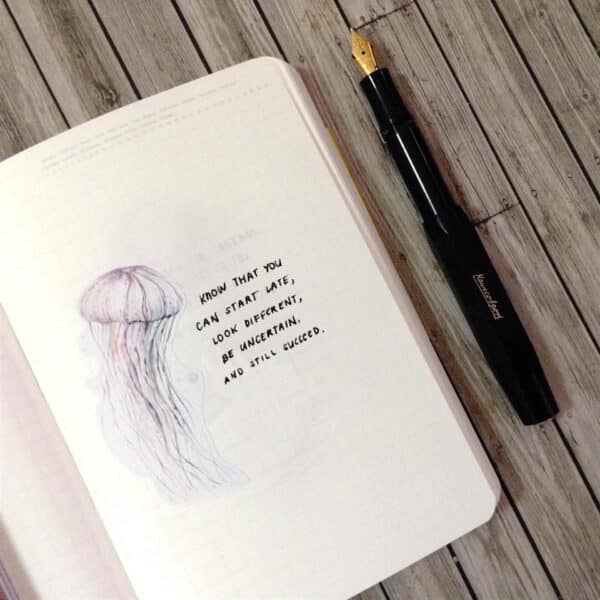 KNOW THAT YOU
CAN START LATE,
LOOK DIFFERENT,
BE UNCERTAIN,
AND STILL SUCCEED.
Kaweco Sport